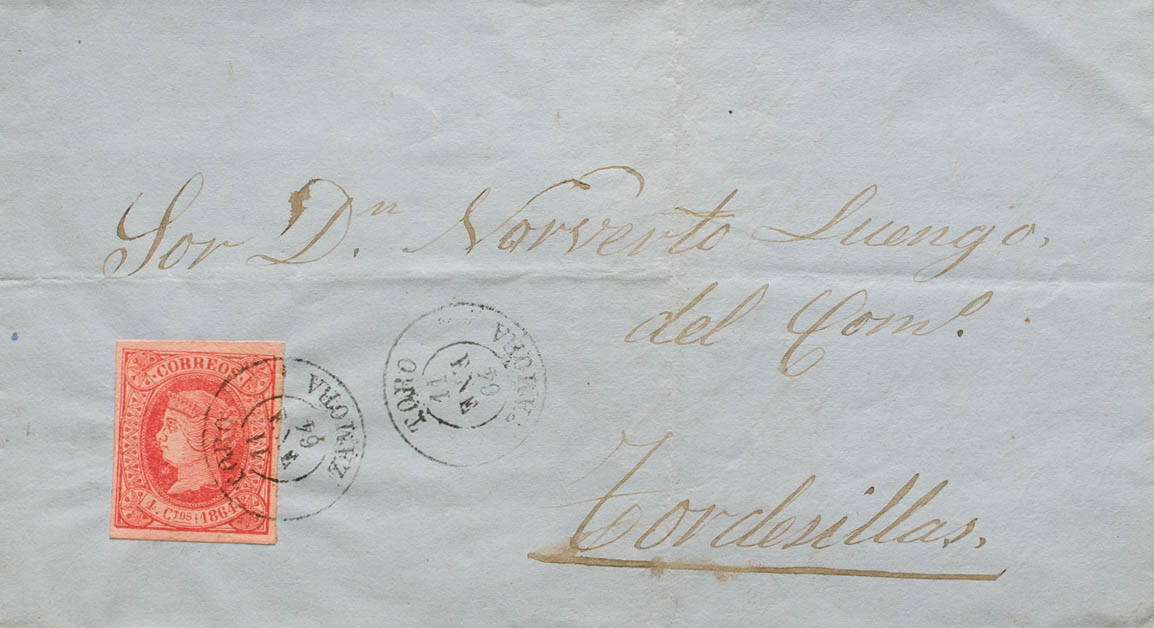 Sor Dn. Norverto Luengo.
del Como.
Tordesillas.
CORREOS
4. CTOS 1864
TORO
11
ENE
64
ZAMORA
TORO
11
ENE
64
ZAMORA